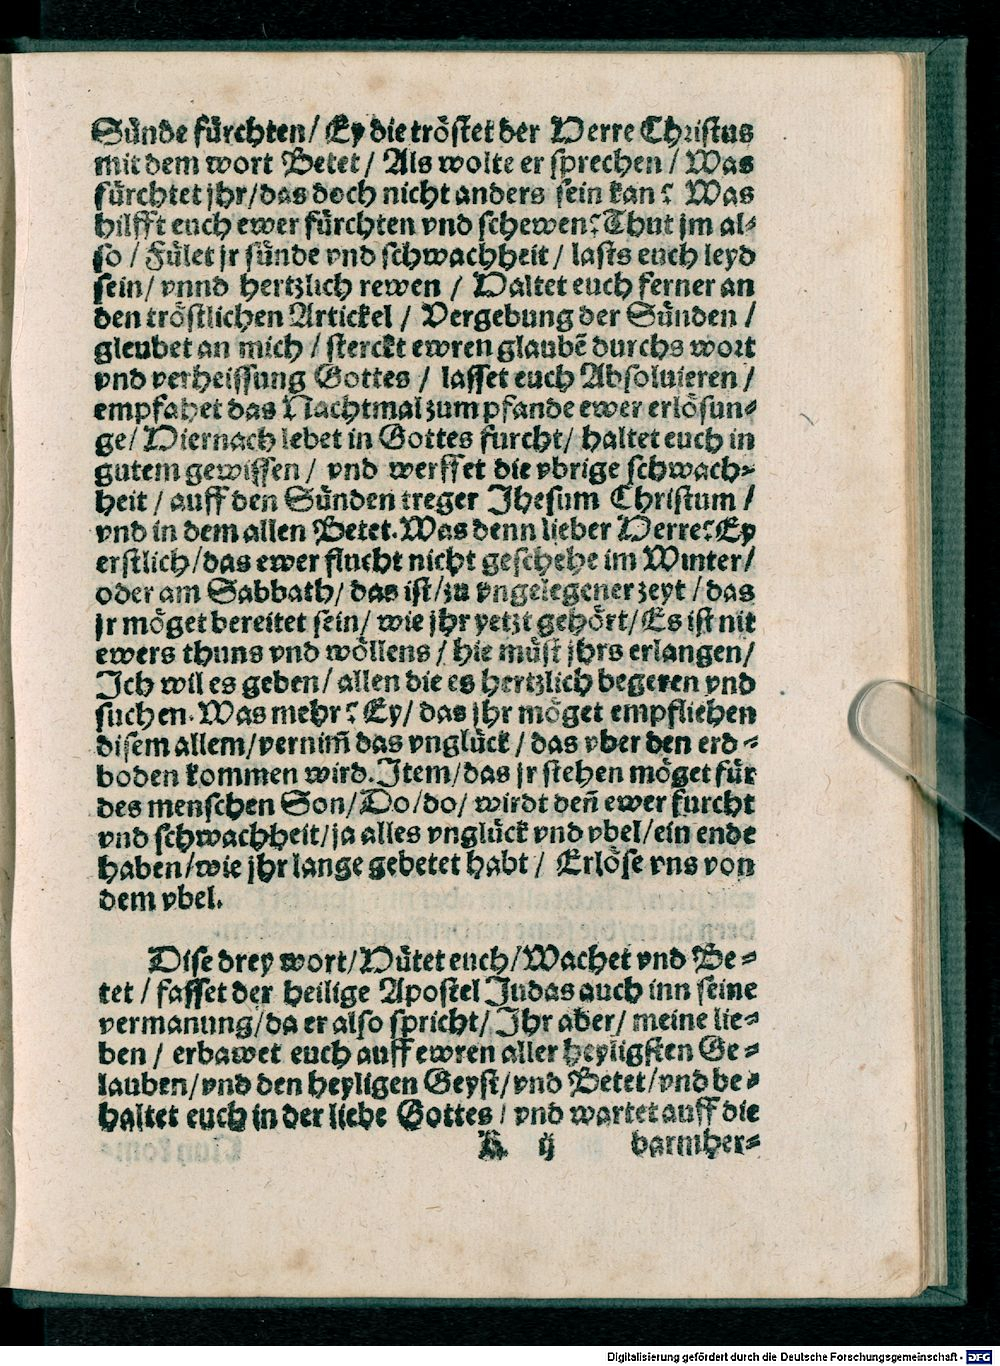 Sünde fürchten/ Ey die tröstet der Herre Christus
mit dem wort Betet / Als wolte er sprechen / Was
fürchtet jhr/das doch nicht anders sein kan? Was
hilfft euch ewer fürchten vnd schewen? Thut jm al⸗
so / Fület jr sünde vnd schwachheit / lasts euch leyd
sein/ vnnd hertzlich rewen / Haltet euch ferner an
den tröstlichen Artickel / Vergebung der Sünden /
gleubet an mich / sterckt ewren glaubẽ durchs wort
vnd verheissung Gottes / lasset euch Absoluieren /
empfahet das Nachtmal zum pfande ewer erlösun⸗
ge/ Hiernach lebet in Gottes furcht/ haltet euch in
gutem gewissen / vnd werffet die vbrige schwach⸗
heit / auff den Sünden treger Jhesum Christum /
vnd in dem allen Betet. Was denn lieber Herre? Ey
erstlich/das ewer flucht nicht geschehe im Winter/
oder am Sabbath/ das ist/zu vngelegener zeyt / das
jr möget bereitet sein/ wie jhr yetzt gehört/ Es ist nit
ewers thuns vnd wöllens / hie müst jhrs erlangen/
Jch wil es geben/ allen die es hertzlich begeren vnd
suchen. Was mehr? Ey/ das jhr möget empfliehen
disem allem/vernim̃ das vnglück / das vber den erd⸗
boden kommen wird. Jtem/das jr stehen möget für
des menschen Son/Do/do/ wirdt deñ ewer furcht
vnd schwachheit/ja alles vnglück vnd vbel/ein ende
haben/wie jhr lange gebetet habt / Erlöse vns von
dem vbel.
Dise drey wort/Hütet euch/Wachet vnd Be⸗
tet / fasset der heilige Apostel Judas auch inn seine
vermanung/da er also spricht/ Jhr aber/ meine lie⸗
ben / erbawet euch auff ewren aller heyligsten Ge⸗
lauben/vnd den heyligen Geyst/vnd Betet/vnd be⸗
haltet euch in der liebe Gottes / vnd wartet auff die
K ij barmher⸗
Digitalisierung gefördert durch die Deutsche Forschungsgemeinschaft - DFG